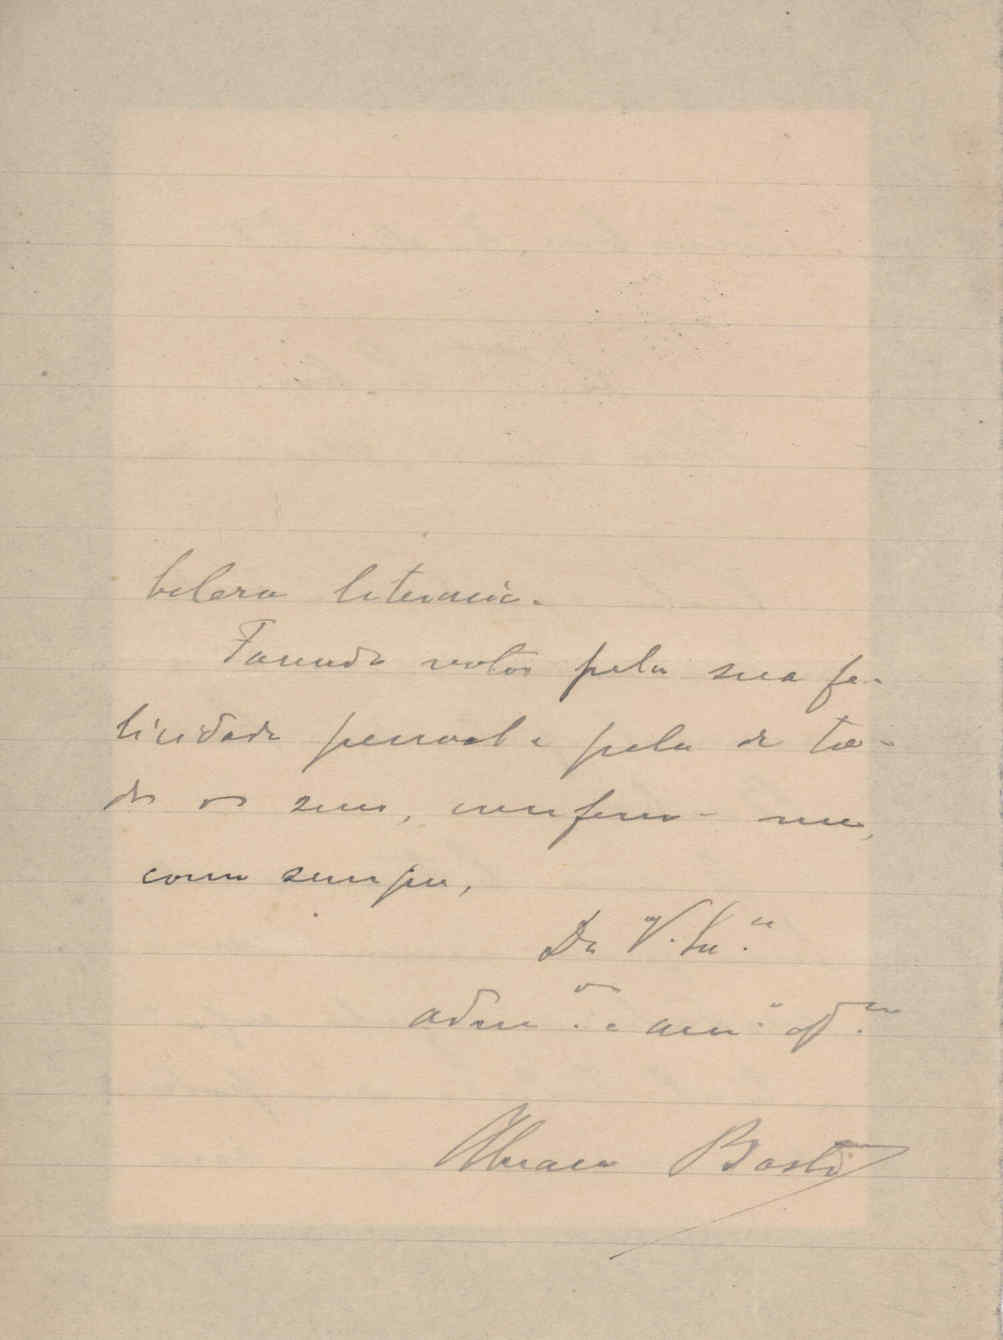 beleza literaria.
Fazendo votos pela sua fe-
licidade pessoal e pela de to-
dos os seus, confesso-me,
como sempre,
De V. Ex.ª
adm.ᵒʳ e am.º
Bastos